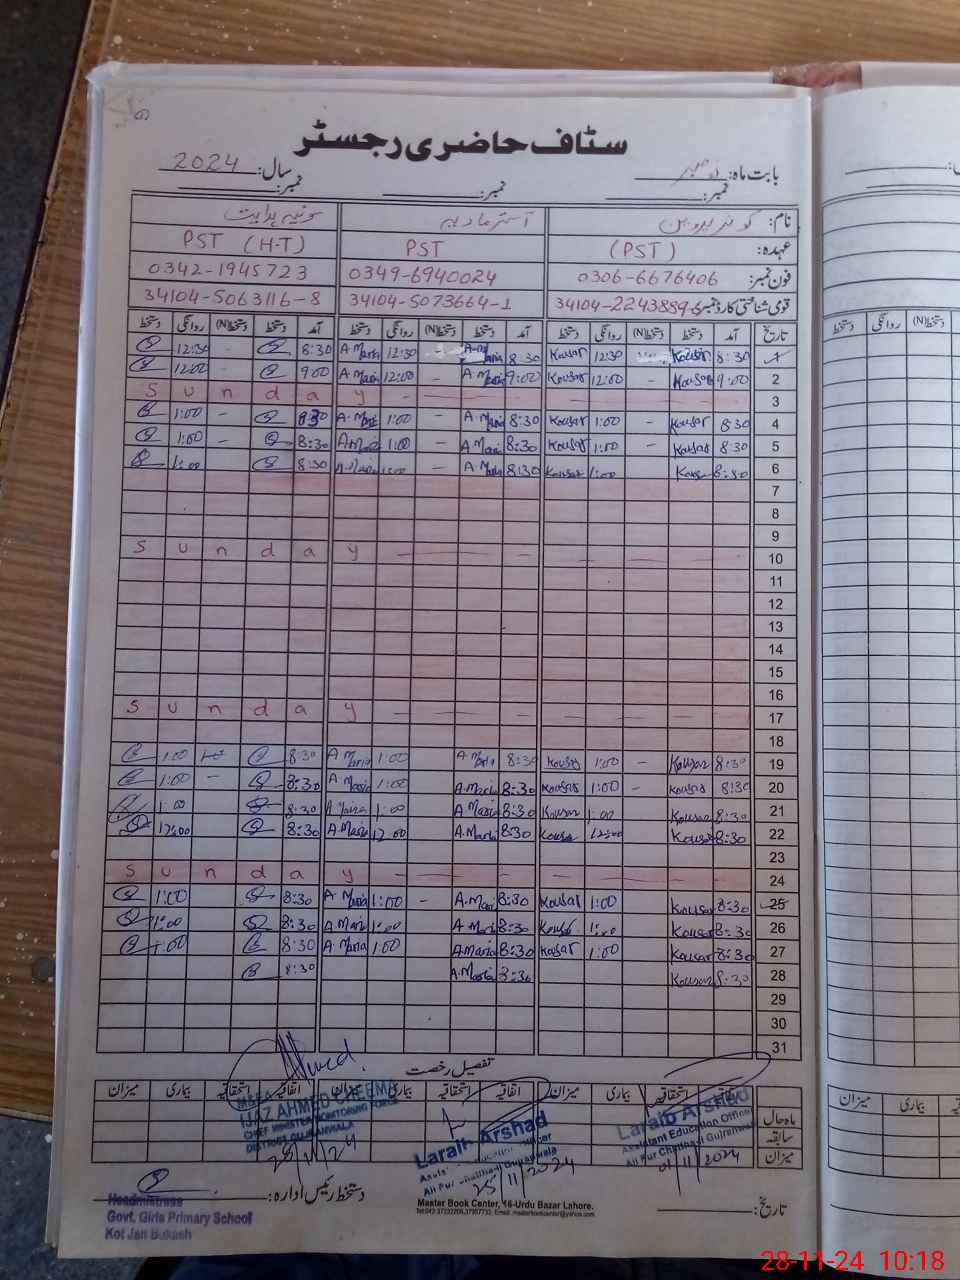 سٹاف حاضری رجسٹر
بابت ماہ: نومبر سال: 2024
نمبر: نمبر: نمبر:
نام: کوثر پروین آستر ماریہ سونیہ ہدایت
عہدہ: (PST) PST PST (H-T)
فون نمبر: 0306-6676406 0349-6940024 0342-1945723
قومی شناختی کارڈ نمبر 34104-2243889 34104-5073664-1 34104-5063116-8
تاریخ آمد دستخط دستخط(N) روانگی دستخط آمد دستخط دستخط(N) روانگی دستخط آمد دستخط دستخط(N) روانگی دستخط
1 8:30 Kousar 12:30 Kousar 8:30 A.Maria - 12:30 A.Maria 8:30 - 12:30
2 9:00 Kousar - 12:00 Kousar 9:00 A.Maria - 12:00 A.Maria 9:00 - 12:00
3 S u n d a y
4 8:30 Kousar - 1:00 Kousar 8:30 A.Maria - 1:00 A.Maria - 1:00
5 8:30 Kousar - 1:00 Kousar 8:30 A.Maria - 1:00 A.Maria 8:30 - 1:00
6 8:30 Kousar 1:00 Kousar 8:30 A.Maria 1:00 A.Maria 8:30 1:00
7
8
9
10 S u n d a y
11
12
13
14
15
16
17 S u n d a y
18
19 8:30 Kousar - 1:00 Kousar 8:30 A.Maria 1:00 A.Maria 8:30 1:00
20 8:30 Kousar - 1:00 Kousar 8:30 A.Maria 1:00 A.Maria 8:30 - 1:00
21 8:30 Kousar 1:00 Kousar 8:30 A.Maria 1:00 A.Maria 8:30 1:00
22 8:30 Kousar 12:00 Kousar 8:30 A.Maria 12:00 A.Maria 8:30 12:00
23
24 S u n d a y
25 8:30 Kousar 1:00 Kousar 8:30 A.Maria - 1:00 A.Maria 8:30 1:00
26 8:30 Kousar 1:00 Kousar 8:30 A.Maria 1:00 A.Maria 8:30 1:00
27 8:30 Kousar 1:00 Kousar 8:30 A.Maria 1:00 A.Maria 8:30 1:00
28 8:30 Kousar 8:30 A.Maria 8:30
29
30
31
تفصیل رخصت
اتفاقیہ استحقاقیہ بیماری میزان اتفاقیہ استحقاقیہ بیماری میزان اتفاقیہ استحقاقیہ بیماری میزان
ماہ حال
سابقہ
میزان
Laraib Arshad
Assistant Education Officer
Ali Pur Chatha@ Gujranwala
01/11/2024
Laraib Arshad
Assistant Education Officer
25/11/2024
Ahmed
IJAZ AHMED CHEEMA
CHIEF MINISTER MONITORING FORCE
DISTRICT GUJRANWALA
28/11/24
تاریخ: دستخط رئیس ادارہ:
Headmistress
Govt. Girls Primary School
Kot Jan Buksh
Master Book Center, 16-Urdu Bazar Lahore.
28-11-24 10:18
دستخط روانگی دستخط(N)
میزان بیماری